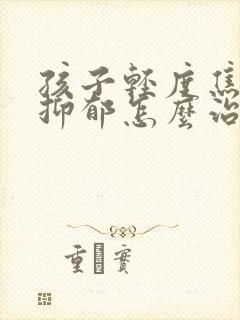 孩子輕度焦
抑郁怎麼治
重實